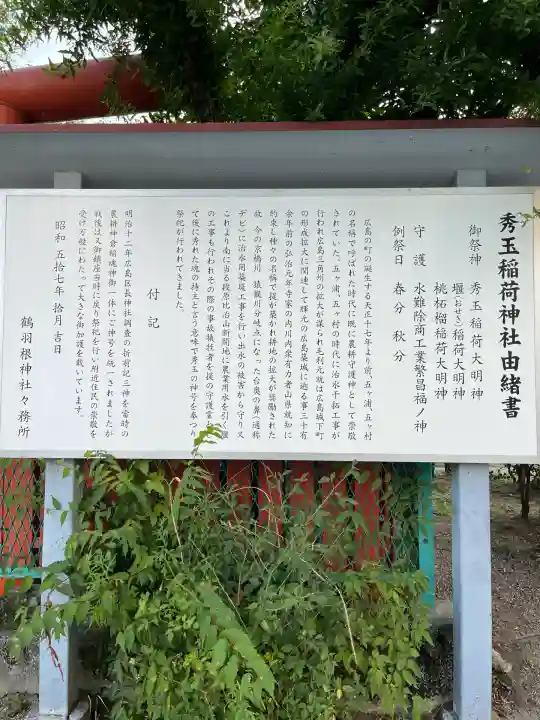 秀玉稲荷神社由緒書
御祭神 秀玉稲荷大明神
堰(おせき)稲荷大明神
桃柘榴稲荷大明神
守護 水難除商工業繁昌福ノ神
例祭日 春分 秋分
広島の町の誕生する天正十七年より前、五ヶ浦、五ヶ村
の名称で呼ばれた時代に既に農耕守護神として崇敬
されていた。五ヶ浦、五ヶ村の時代に治水干拓工事が
行われ広島三角州の拡大が謀られ毛利元就は広島城下町
の形成拡大に関連して輝元の広島築城に遡る事三十有
余年前の弘治元年寺家の内川内衆有力者山県就知に
約束し種々の名称で堤が築かれ耕地の拡大が奨励された
故 今の京橋川 猿猴川分岐点になった台奥の鼻(通称
デビ)に治水用築堤工事を行い出水の被害から守り又
これより南に当る段原比治山新開地に農業用水を引く堰
の工事も行われその際の事故犠牲者を後の守護霊とし
て後に秀れた魂の持主と言う意味で秀玉の神号を奉つり
祭祀が行われてきました。
付記
明治十二年広島区長神社調査の折前記三神を当時の
農耕神倉稲魂神御一体にご神号を統一されましたが
戦後は又御鎮座当時に戻り祭祀を行い附近住民の崇敬を
受け万般にわたって大きな御加護を戴いています。
昭和五拾七年拾月吉日
鶴羽根神社々務所